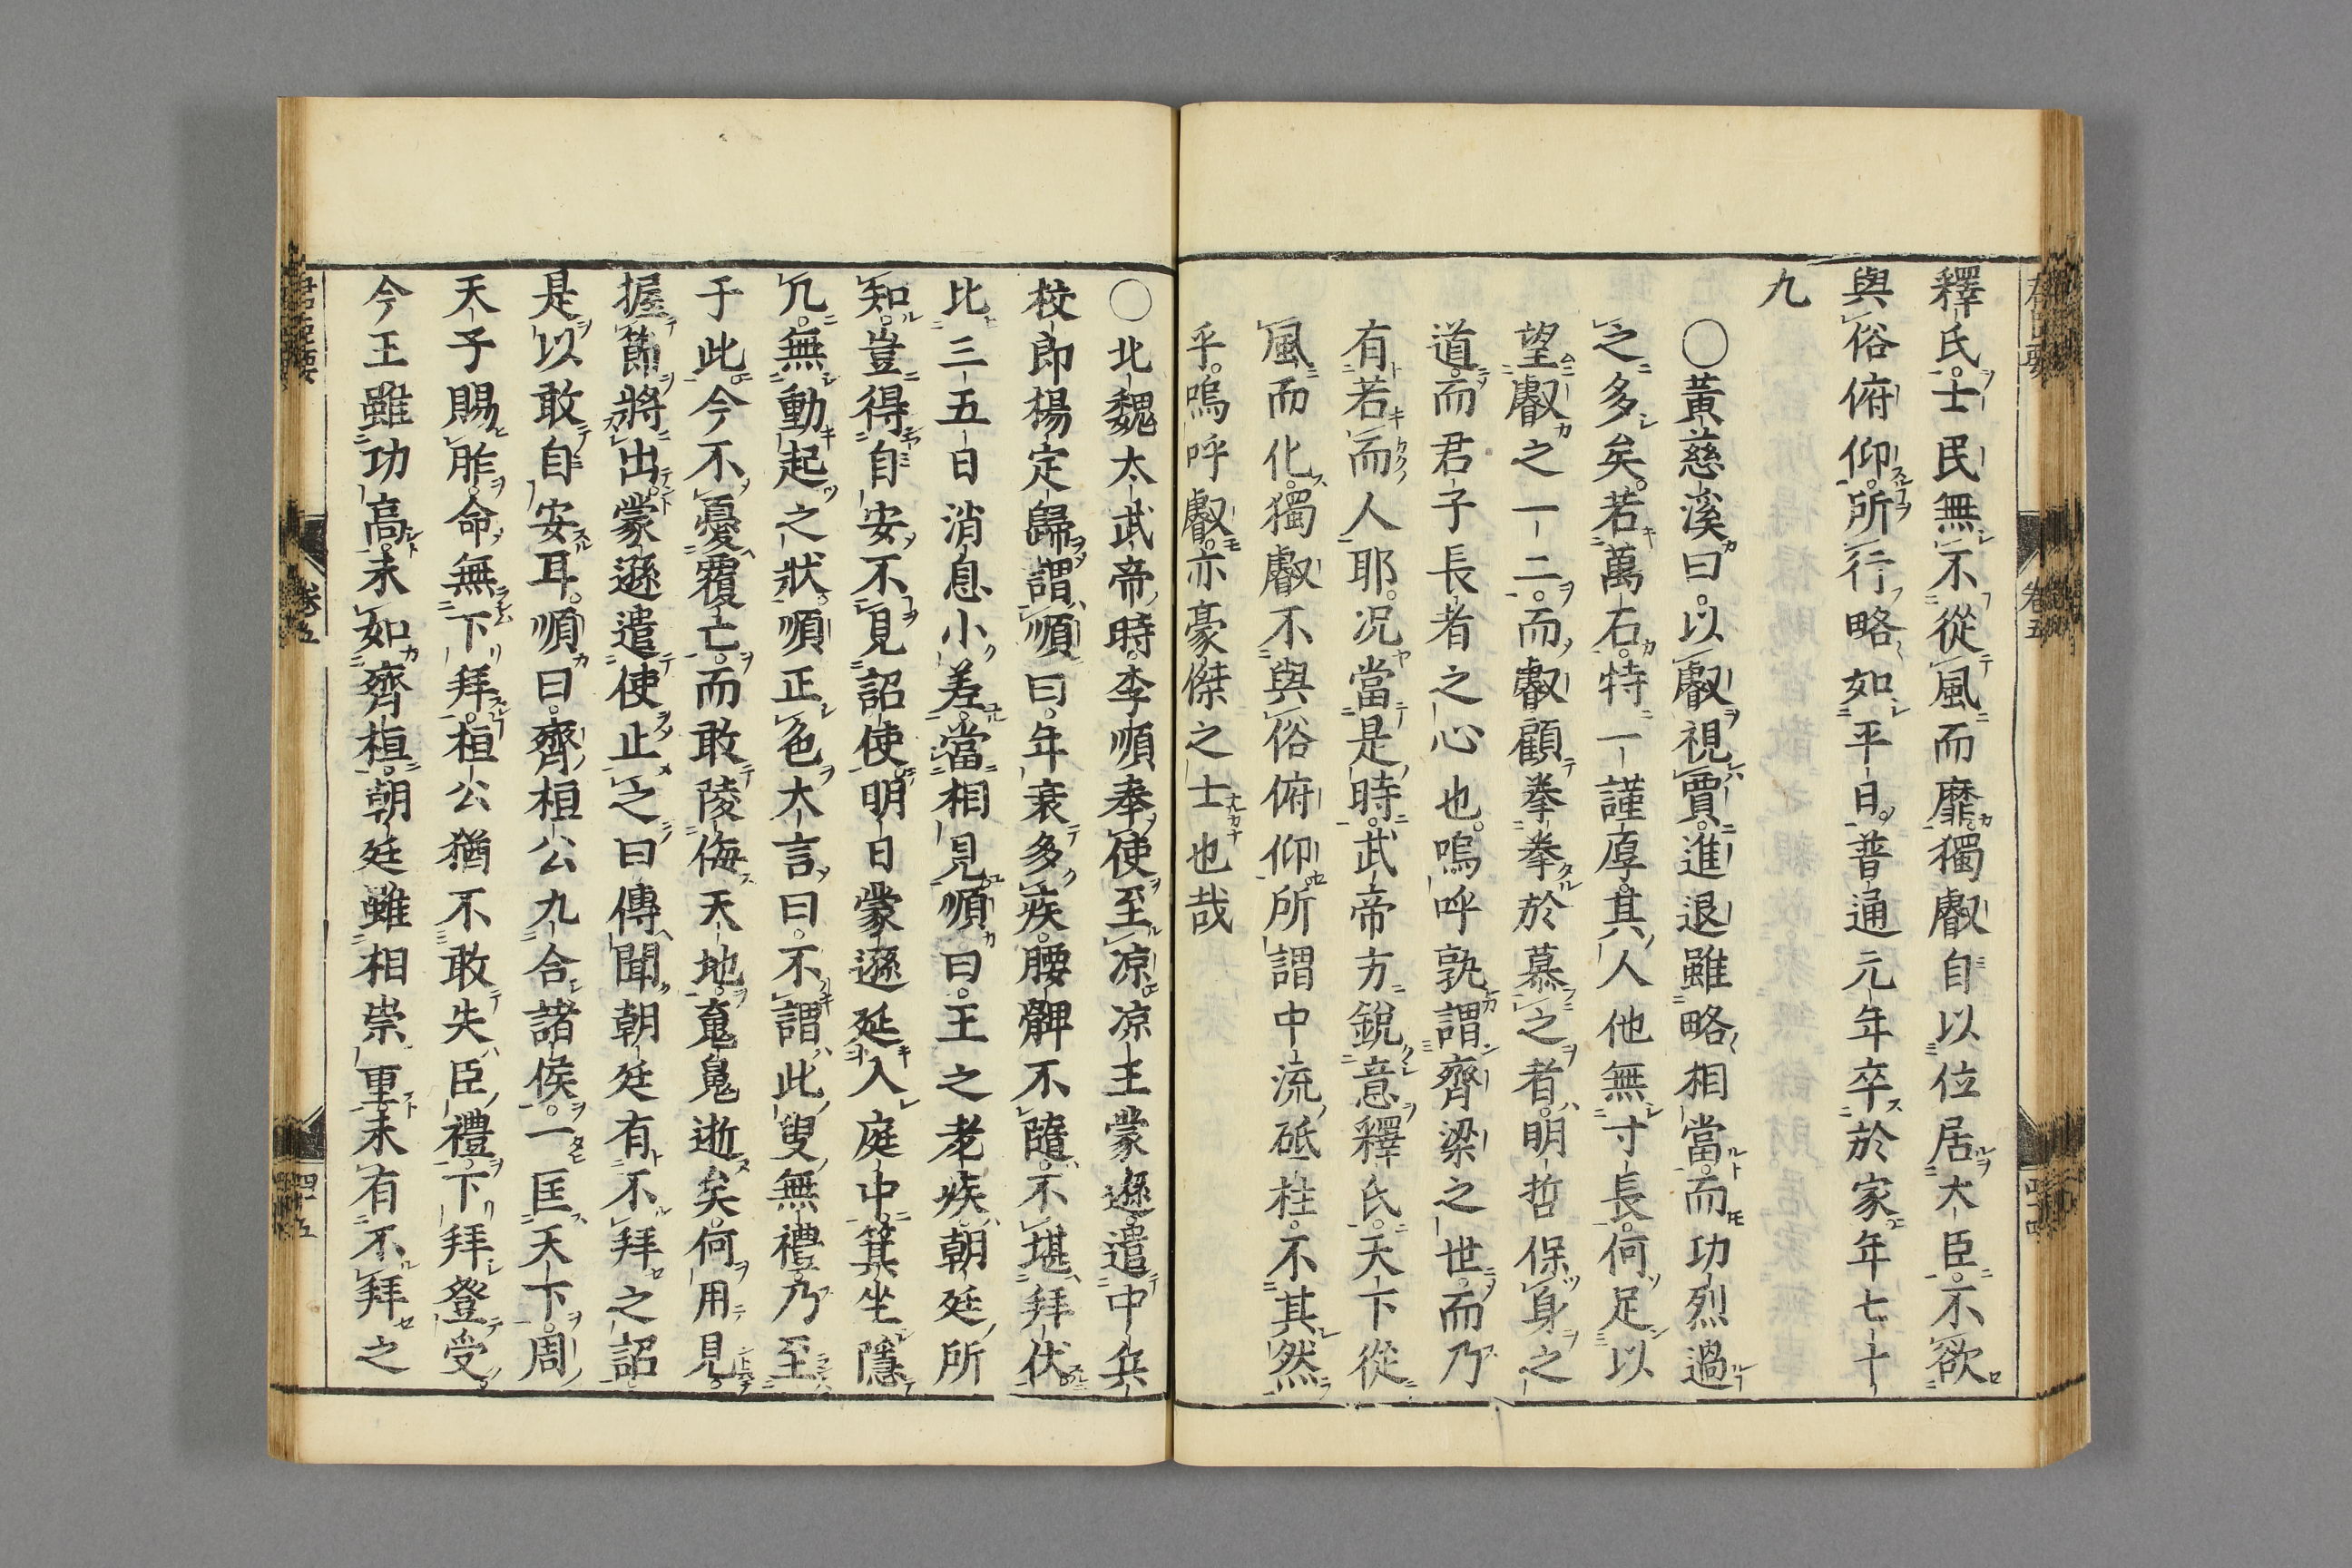 釋氏士民無不從風而靡獨叡自以位居大臣不欲
與俗俯仰所行略如平日普通元年卒於家年七十
九
〇黃慈溪曰以叡視賈進退雖略相當而功烈過
之多矣若萬石特一謹厚其人他無寸長何足以
望叡之一二而叡顧拳拳於慕之者明哲保身之
道而君子長者之心也嗚呼孰謂齊梁之世而乃
有若而人耶況當是時武帝方銳意釋氏天下從
風而化獨叡不與俗俯仰所謂中流砥柱不其然
乎嗚呼叡亦豪傑之士也哉
〇北魏太武帝時李順奉使至凉凉王蒙遜遣中兵
校郎楊定歸謂順曰年衰多疾腰髀不隨不堪拜伏
比三五日消息小差當相見順曰王之老疾朝廷所
知豈得自安不見詔使明日蒙遜延入庭中箕坐隱
几無動起之狀順正色大言曰不謂此叟無禮乃至
于此今不憂覆亡而敢陵侮天地䰟䰟逝矣何用見
握節將出蒙遜遣使止之曰傳聞朝廷有不拜之詔
是以敢自安耳順曰齊桓公九合諸侯一匡天下周
天子賜胙命無下拜桓公猶不敢失臣禮下拜登受
今王雖功高未如齊桓朝廷雖相崇重未有不拜之
卷五
四十四
卷五
四十五